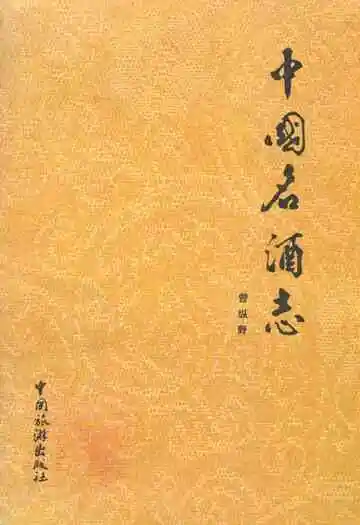 中國名酒志
曾纵野
中国旅游出版社